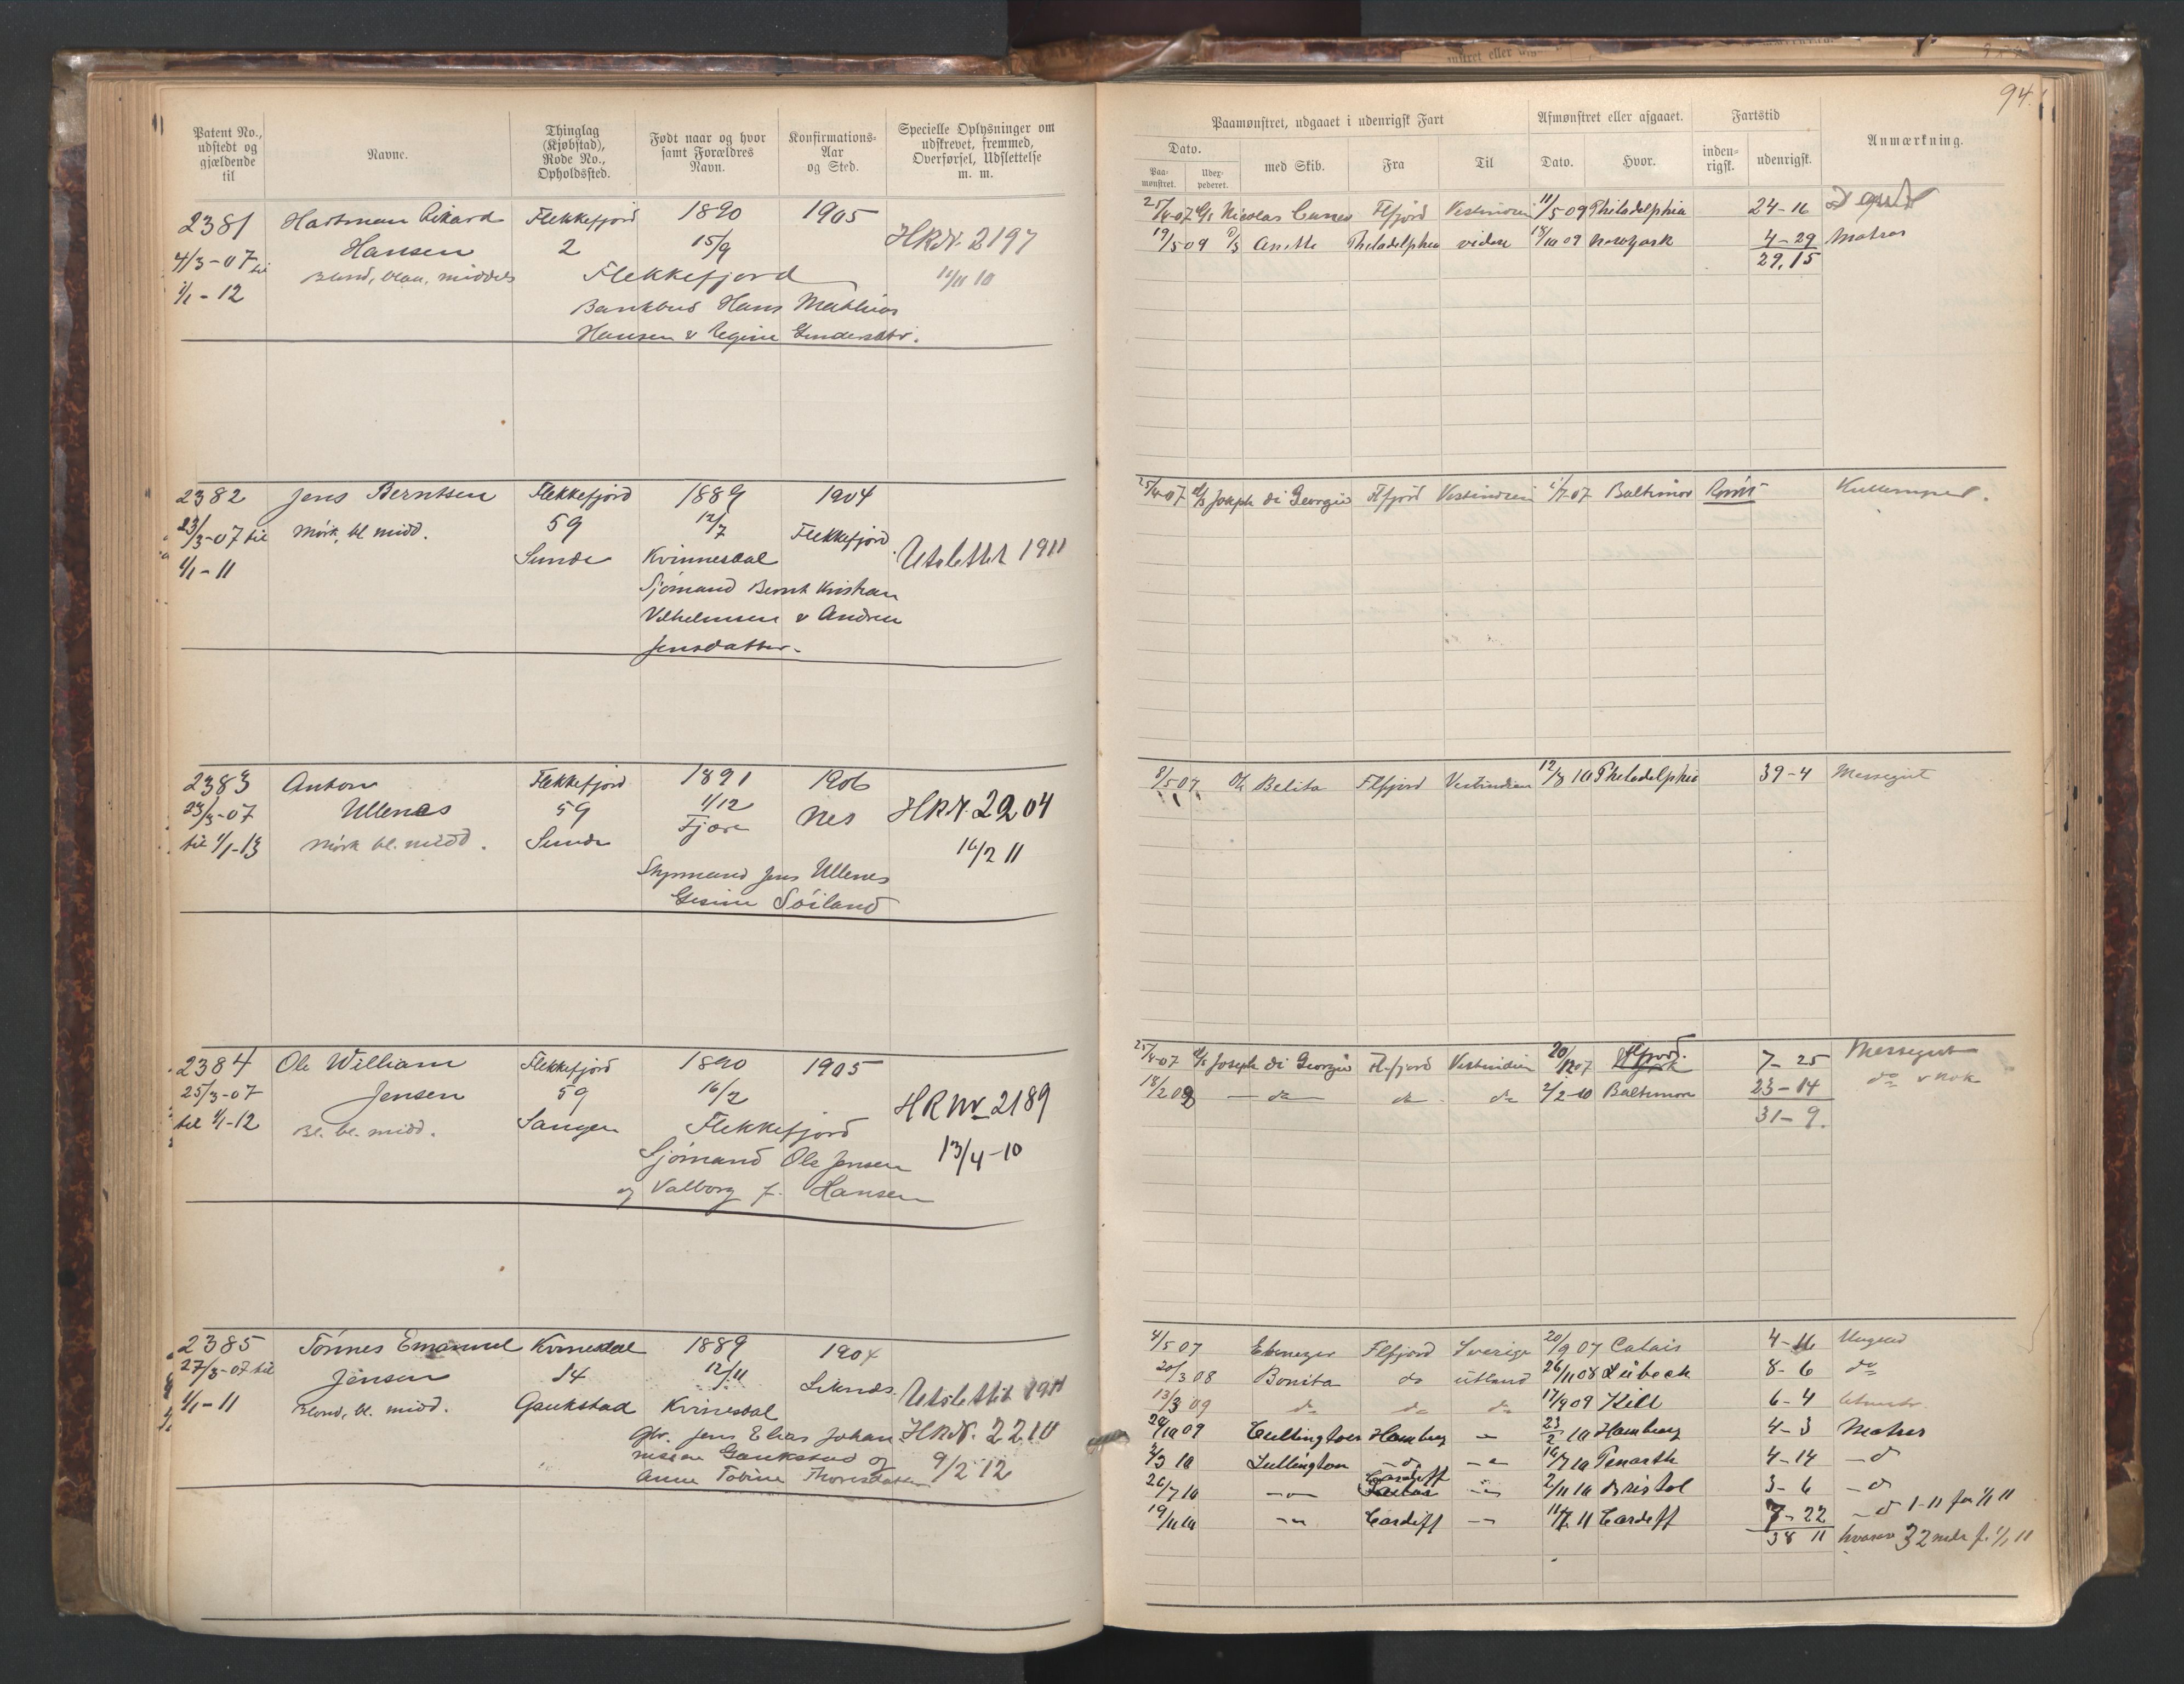 94.
Patent No., udstedt og gjældende til
Navne.
Thinglag (Kjøbstad), Rode No., Opholdssted.
Født naar og hvor samt Forældres Navn.
Konfirmations-Aar og Sted.
Specielle Oplysninger om udskrevet, fremmed, Overførsel, Udslettelse m. m.
Paamønstret, udgaaet i udenrigsk Fart
Afmønstret eller afgaaet.
Fartstid
Anmærkning.
Dato.
Paa-mønstret.
Udex-pederet.
med Skib.
Fra
Til
Dato.
Hvor.
inden-rigsk.
udenrigsk.
2381 Hartman Rikard Flekkefjord 1890 1905
4/3-07 til Hansen 2 15/9 HRNr. 2197
1/1-12 Blond, blaa, middels Flekkefjord 14/11 10
Bankbud Hans Mathias
Hansen & Regine Gundersdtr.
25/4-07 Nicolas Cuneo Flfjord Vestindien 11/5 09 Philadelphia 24-16
19/5 09 Anette Philadelphia videre 18/10 09 Newyork 4-29 Matros
29,15
2382 Jens Berntsen Flekkefjord 1889 1904
23/3-07 til Mørk, bl. midd. 59 12/7 Flekkefjord
1/1-11 Sunde Kvinnesdal Utslettet 1911
Sjømand Bernt Kristian
Vilhelmsen & Andrea
Jensdatter.
25/4-07 Joseph di Georgio Flfjord Vestindien 07 Baltimor Rømt
2383 Anton Flekkefjord 1891 1906
23/3-07 Ullenes 59 1/12 Nes HRNr. 2204
til 1/1-13 Mørk bl. midd. Sunde Fjære 16/2 11
Styrmand Jens Ullenes
Gesine Søiland
8/5 07 Belita Flfjord Vestindien 12/8 10 Philadelphia 39-4 Messegut
2384 Ole William Flekkefjord 1890 1905
25/3-07 Jensen 59 16/2 HRNr 2189
til 1/1-12 Bl. bl. midd. Flekkefjord 13/4-10
Sjømand Ole Jensen
og Valborg f. Hansen
25/4-07 Joseph di Georgio Flfjord Vestindien 20/12 07 Flfjord. 7-25 Messegut
18/2 08 do do do 2/2-10 Baltimore 23-14 do & kok
31-9.
2385 Tønnes Emanuel Kvinesdal 1889 1904
27/3-07 til Jensen 14 12/11
1/1-11 Blond, bl. midd. Gaukstad Kvinesdal Utslettet 1911
Gbr. Jens Elias Johan- HRNr. 2210
nessen Gaukstad og 9/2 12
Anne Tobine Thoresdatter
4/5 07 Ebenezer Flfjord Sverige 20/9 07 Calais 4-16
20/3 08 Bonita do utland 26/11 08 Lübeck 8-6 do
13/3 09 do do do 17/9 09 Kiel 6-4
24/10 09 Hamburg 23/2 10 Hamburg 4-3 Matros
3/3 10 Lullington 16/7 10 Penarth 4-14 -d
26/7 10 Cardiff 2/11 10 Bristol 3-6 -d
19/11 10 Cardiff 11/7 11 Cardiff 7-22 -d 1-11 før 1/1 11
38 11 hvorav 32 mdr f. 1/1 11